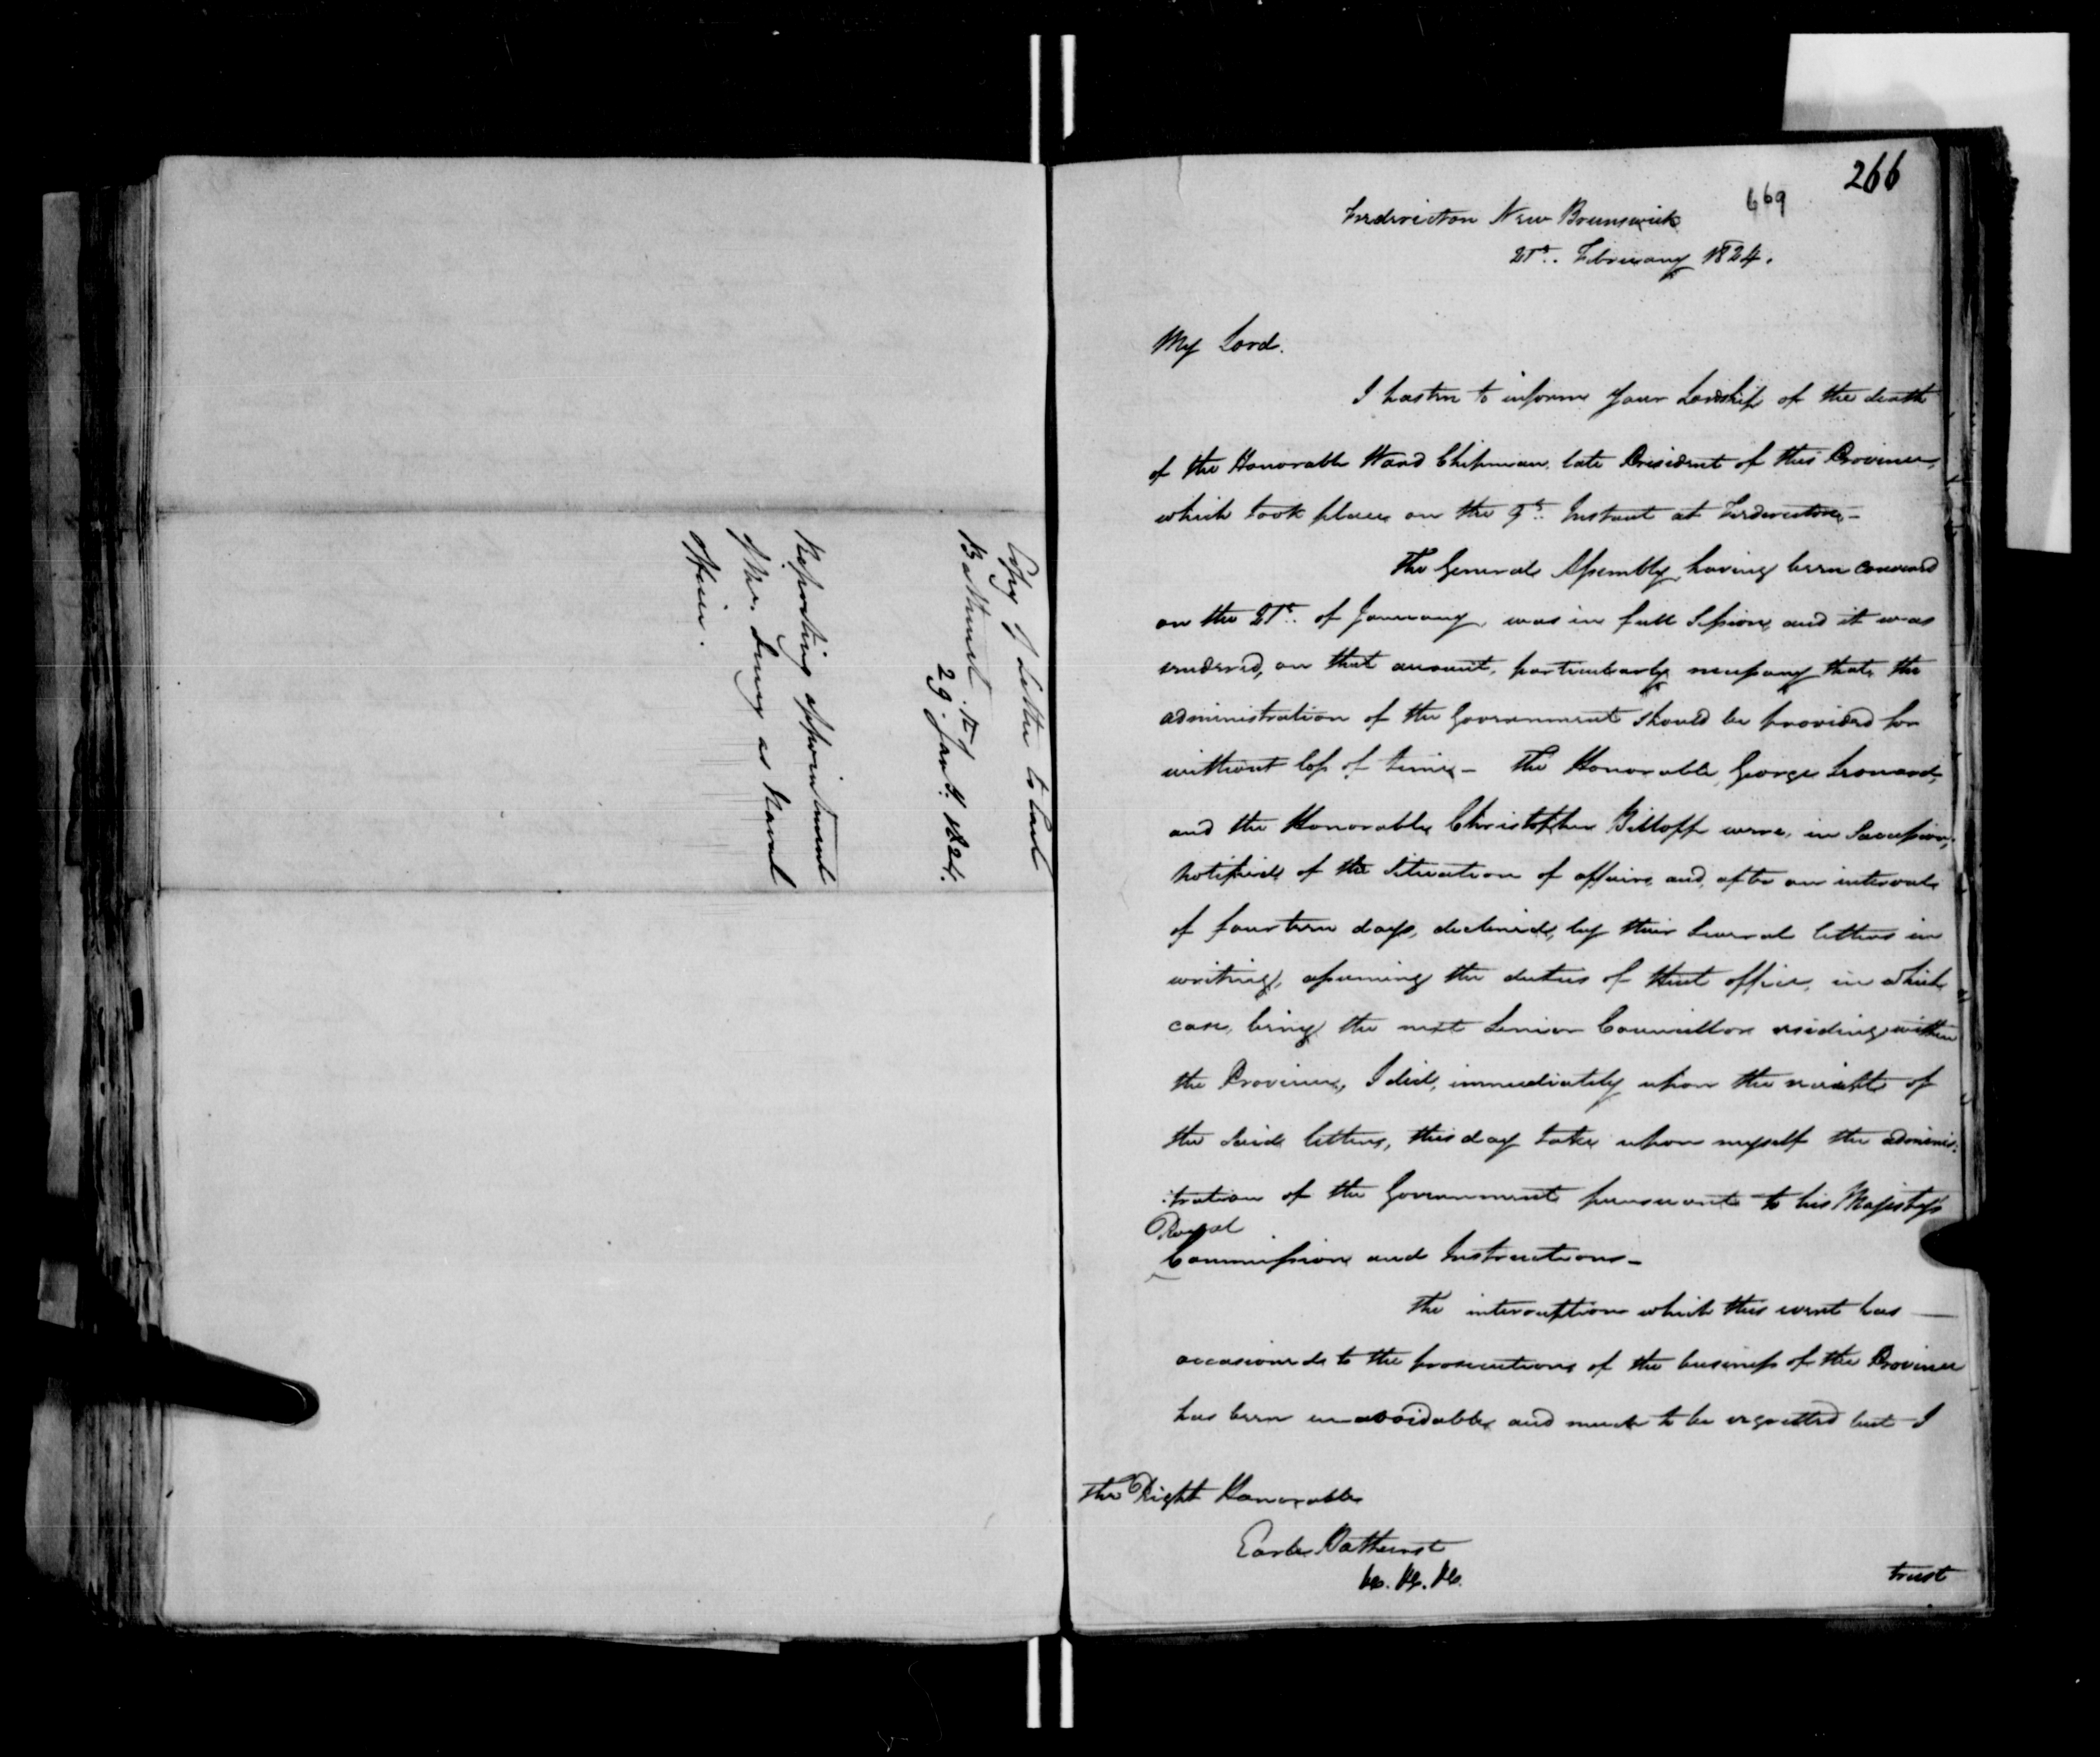 Copy of Letter to Earl
Bathurst
29th Jany. 1824.
Reporting appointment
of Mr. as Naval
Officer.
266
669
Fredericton New Brunswick
21st. February 1824.
My Lord.
I hasten to inform Your Lordship of the death
of the Honorable Ward Chipman, late President of this Province,
which took place on the 9th. Instant at Fredericton.–
The General Assembly, having been convened
on the 21st. of January, was in full Session, and it was
rendered, on that account, particularly necessary that the
administration of the Government should be provided for
without loss of time,– The Honorable, George Leonard,
and the Honorable Christopher Billopp were, in Succession,
notified of the Situation of affairs, and, after an interval
of fourteen days, declined, by their Several letters in
writing, assuming the duties of that office, in which
case, being the next Senior Councillor residing within
the Province, I did, immediately upon the receipt of
the Said letters, this day take upon myself the adminis:
:tration of the Government pursuant to his Majestys
Royal
Commission and Instructions–
The interruption which this event has —
occasioned to the prosecution of the business of the Province
has been unavoidable, and much to be regretted but I
The Right Honorable
Earl Bathurst
&c. &c. &c.
trust